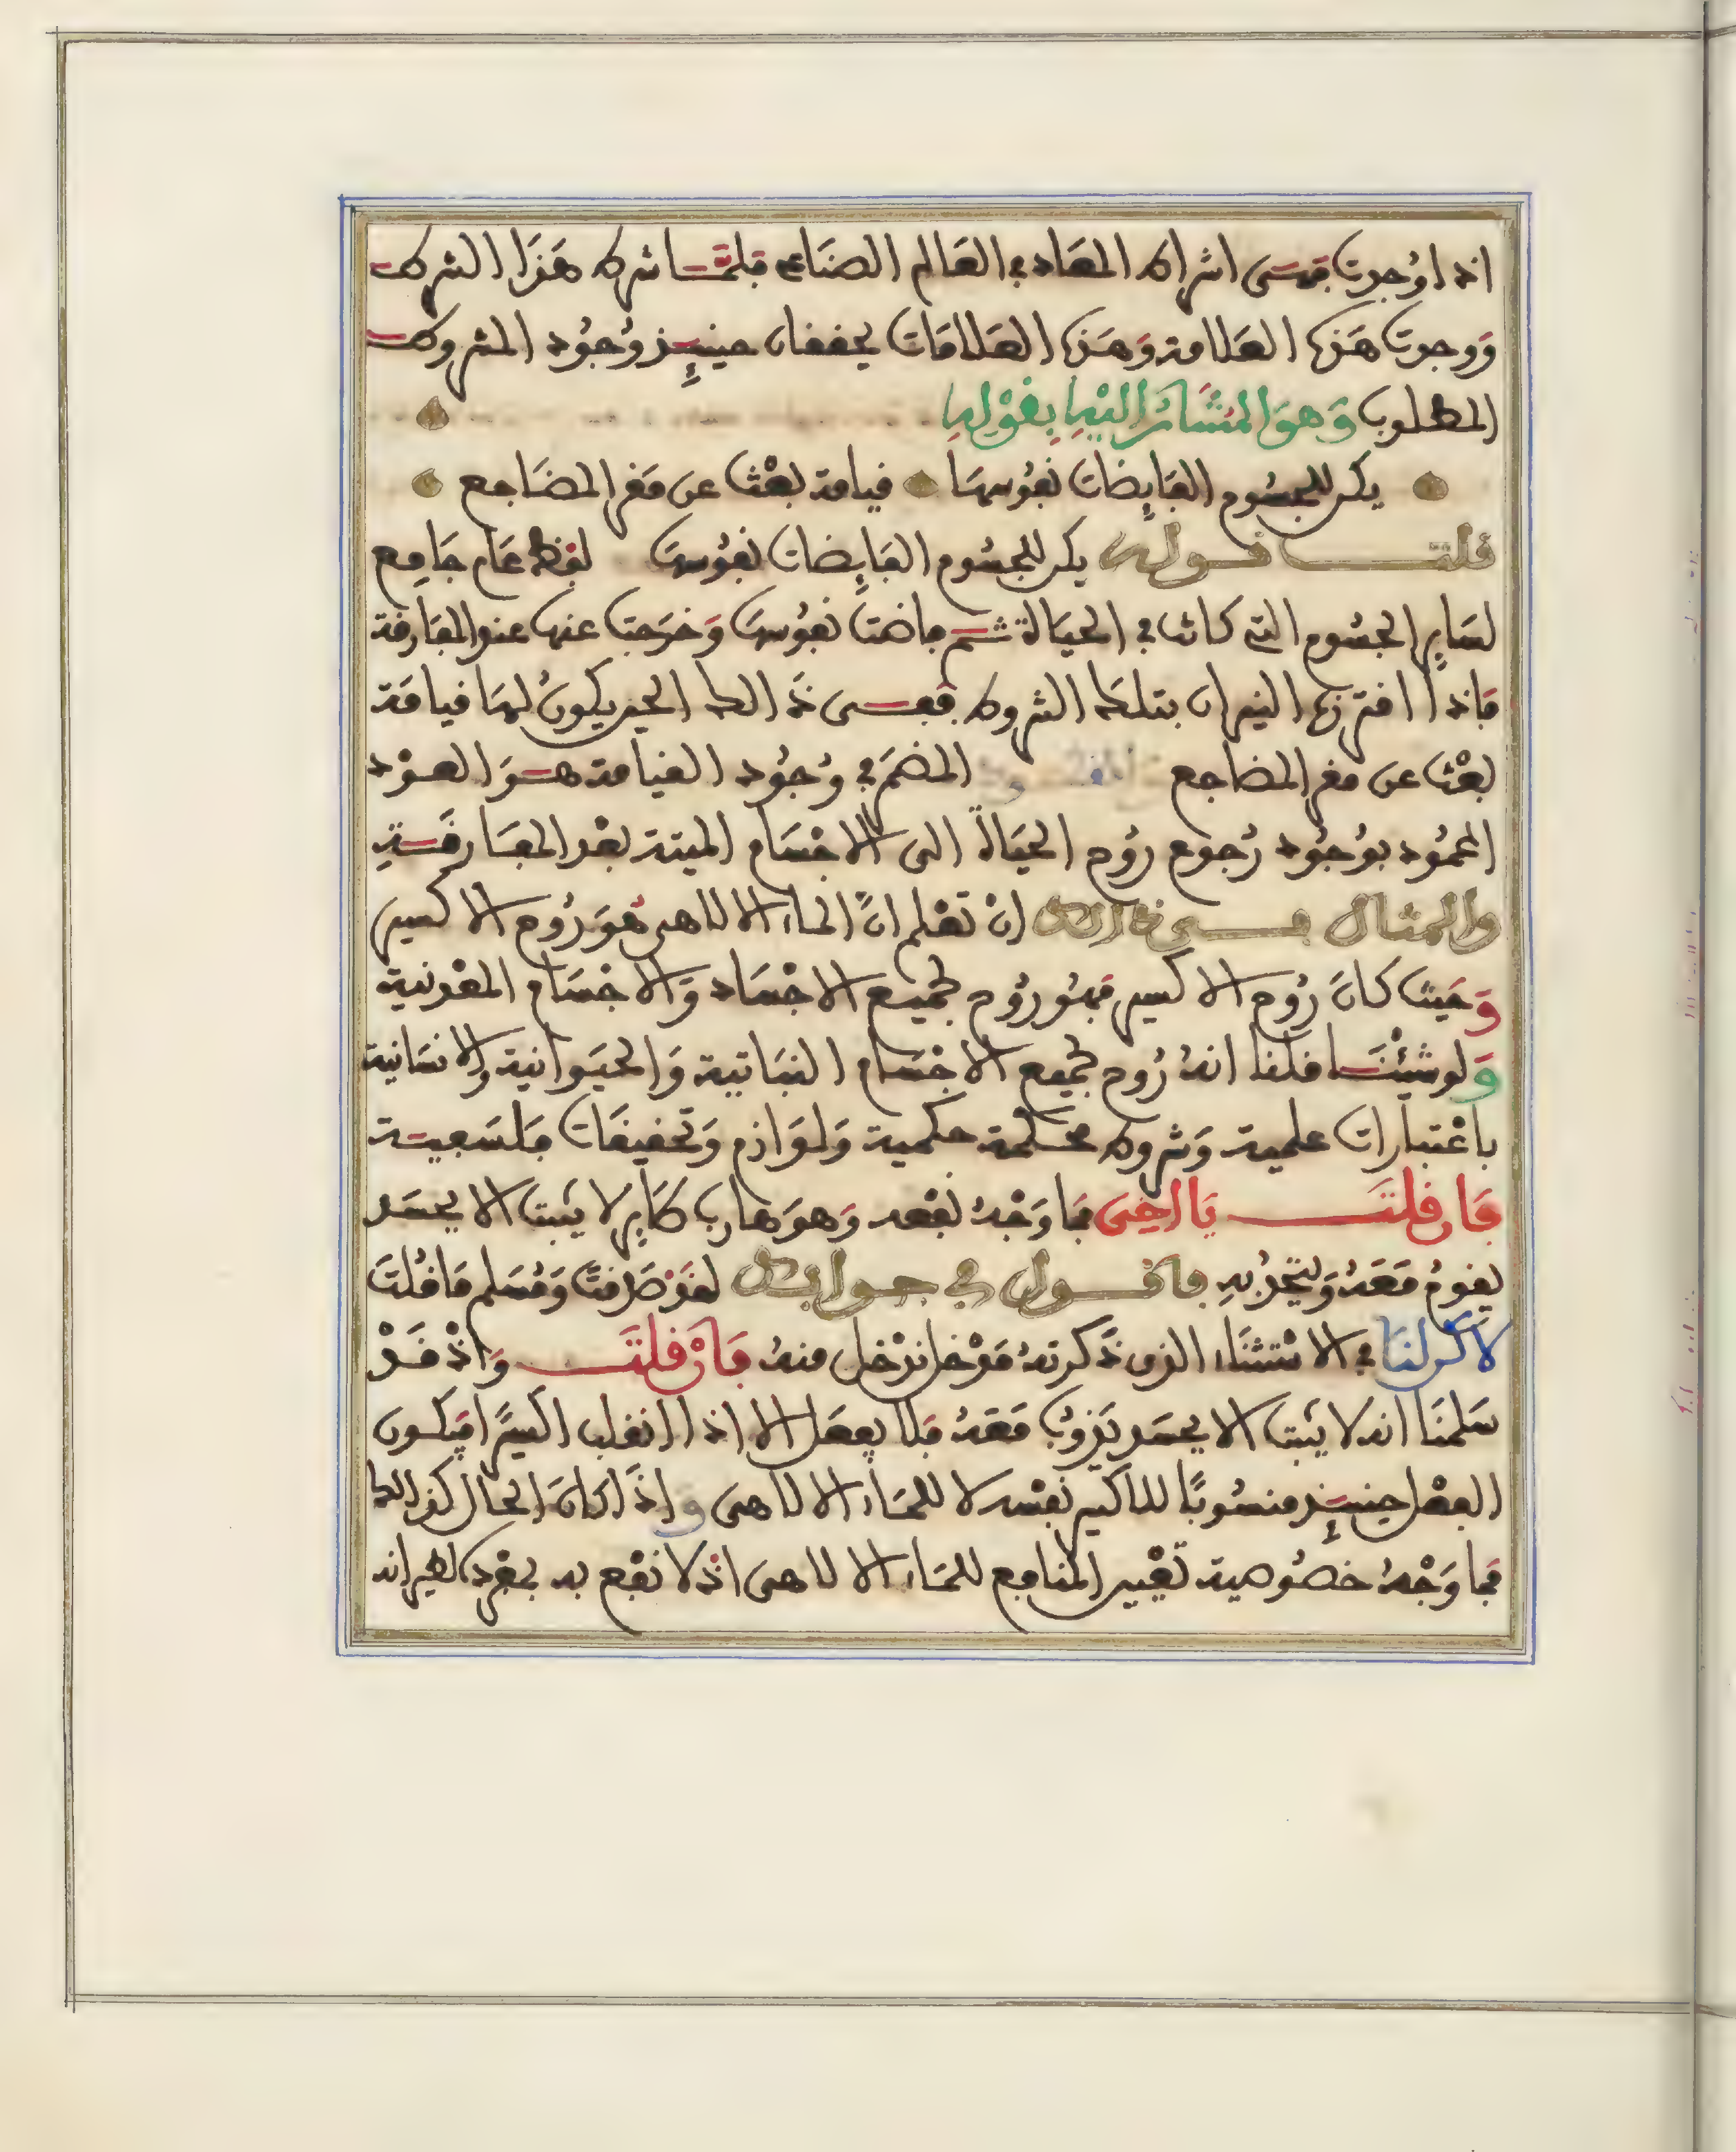 اذا وُجدت فهى اشراط المعاد في العالم الصناعي فلمّا شرط هَذَا الشرط
وَوجدت هَذه العلامة وَهَذه العَلامَات يحققان حينئِذ وُجُود المشروط
المطلوب وَهوَ المُشَارُ اليْهِ بِقوْلِهِ
يكن للجسُوم الفَايِضات نفُوسهَا قيامة بعْث عن مَقر المضَاجع
قلت قوله يكن للجسُوم الفَايِضات نفُوسهَا لفظ عَام جَامِع
لسَايِر الجسُوم التي كانت في الحيَاة ثم فاضت نفُوسهَا وَخرَجت عنهَا عند المفَارقة
فَاذا اقترنَ النيران بتلك الشروط فعسى ذَالك الحين يكونُ لهَا قيامَة
بعْث عن مقر المضاجع المضمَر في وُجُود القيامة هوَ العوْد
المحمُود بوُجُود رُجوع رُوح الحيَاة الى الاجْسَام الميتة بعْد المفَارقَة
والمثال في ذالك انْ تعْلم انّ المَاء الالاهى هُوَ رُوح الاكسير
وَحَيث كانَ رُوح الاكسير فهُوَ رُوح لجميع الاجْسَاد وَالاجْسَام المعْدنية
وَلو شئْنَا قلنا انهُ رُوح لجميع الاجْسَام النبَاتية وَالحيَوانية وَالانسَانية
باعْتبارات علمية وَشروط محكمة حكمية وَلوَازم وَتحقيقَات فلسَفية
فَان قلتَ يَا اخِى فمَا وَجْهُ نفْعه وَهوَ هارب طَاير لا يثبت الا بجسَد
يقومُ مَعَهُ وَيتّحدُ بهِ فاقول في جوابك لقَدْ صَدقتَ وَمُسَلم مَا قُلتَ
لاكن لنَا في الاسْتثنَاء الذى ذَكرتهُ مَدْخل ندْخل منهُ فَانْ قلتَ وَاذْ قَدْ
سَلمنَا انه لا يثبت الا بجسَد يَذوبُ مَعَهُ فَلا يفعَل الا اذا انقلب اكسيرًا فيكون
الفعْل حينئِذ منسُوبًا للاكسير نفسه لا للمَاء الالاهى وَاذَا كانَ الحال كذالك
فمَا وَجْهُ خصُوصية تعْيين المنافع للمَاء الالاهى اذ لا نفْع به بمفْرده لغير انه